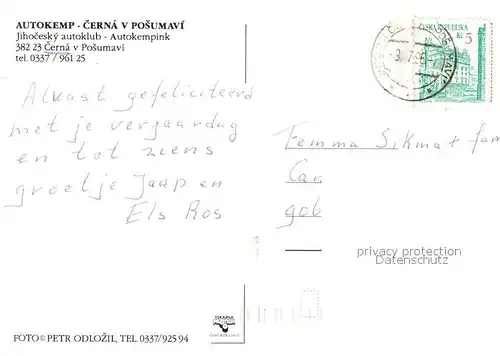 AUTOKEMP - ČERNÁ V POŠUMAVÍ
Jihočeský autoklub - Autokempink
382 23 Černá v Pošumaví
tel. 0337/961 25
ČESKÁ REPUBLIKA
Kč 5
Alvast gefeliciteerd
met je verjaardag
en tot ziens
groetje Jaap en
Els Ros
Femma Sikma + fam
Car
gob
privacy protection
Datenschutz
FOTO © PETR ODLOŽIL, TEL. 0337/925 94